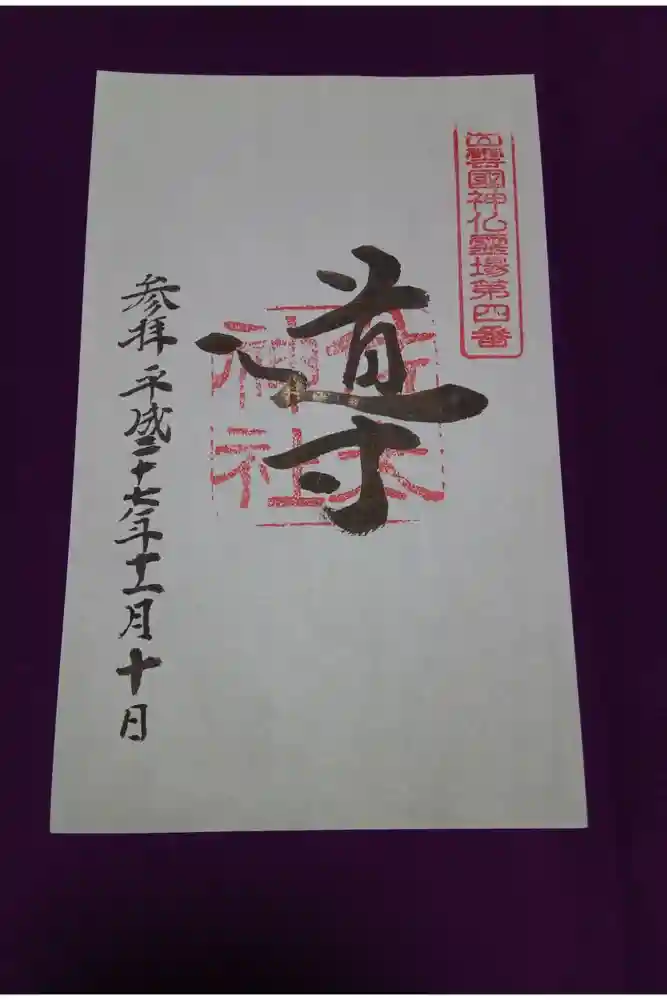 出雲國神仏靈場第四番
佐太神社
導
参拝 平成二十七年十一月十日